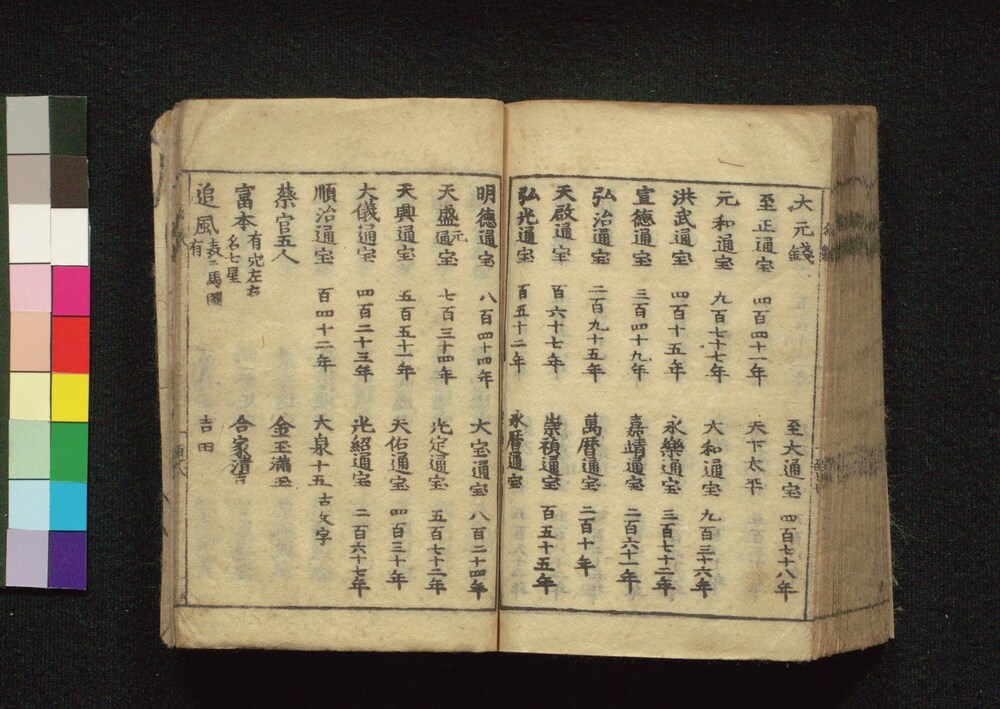 大元錢　至大通宝　四百七十八年
至正通宝　四百四十一年　天下太平
元和通宝　九百七十七年　大和通宝　九百三十六年
洪武通宝　四百十五年　永樂通宝　三百七十二年
宣德通宝　三百四十九年　嘉靖通宝　二百六十一年
弘治通宝　二百九十五年　萬暦通宝　二百十年
天啟通宝　百六十七年　崇禎通宝　百五十五年
弘光通宝　百五十二年　永暦通宝
明德通宝　八百四十四年　大宝通宝　八百二十四年
天盛通元宝　七百三十四年　光定通宝　五百七十二年
天興通宝　五百五十一年　天佑通宝　四百三十年
大儀通宝　四百二十三年　光紹通宝　二百六十七年
順治通宝　百四十二年　大泉十五　古文字
蔡官五人　金玉滿玉
富本　有穴左右　名七星　合家清吉
追風　表ニ馬圖有　吉田